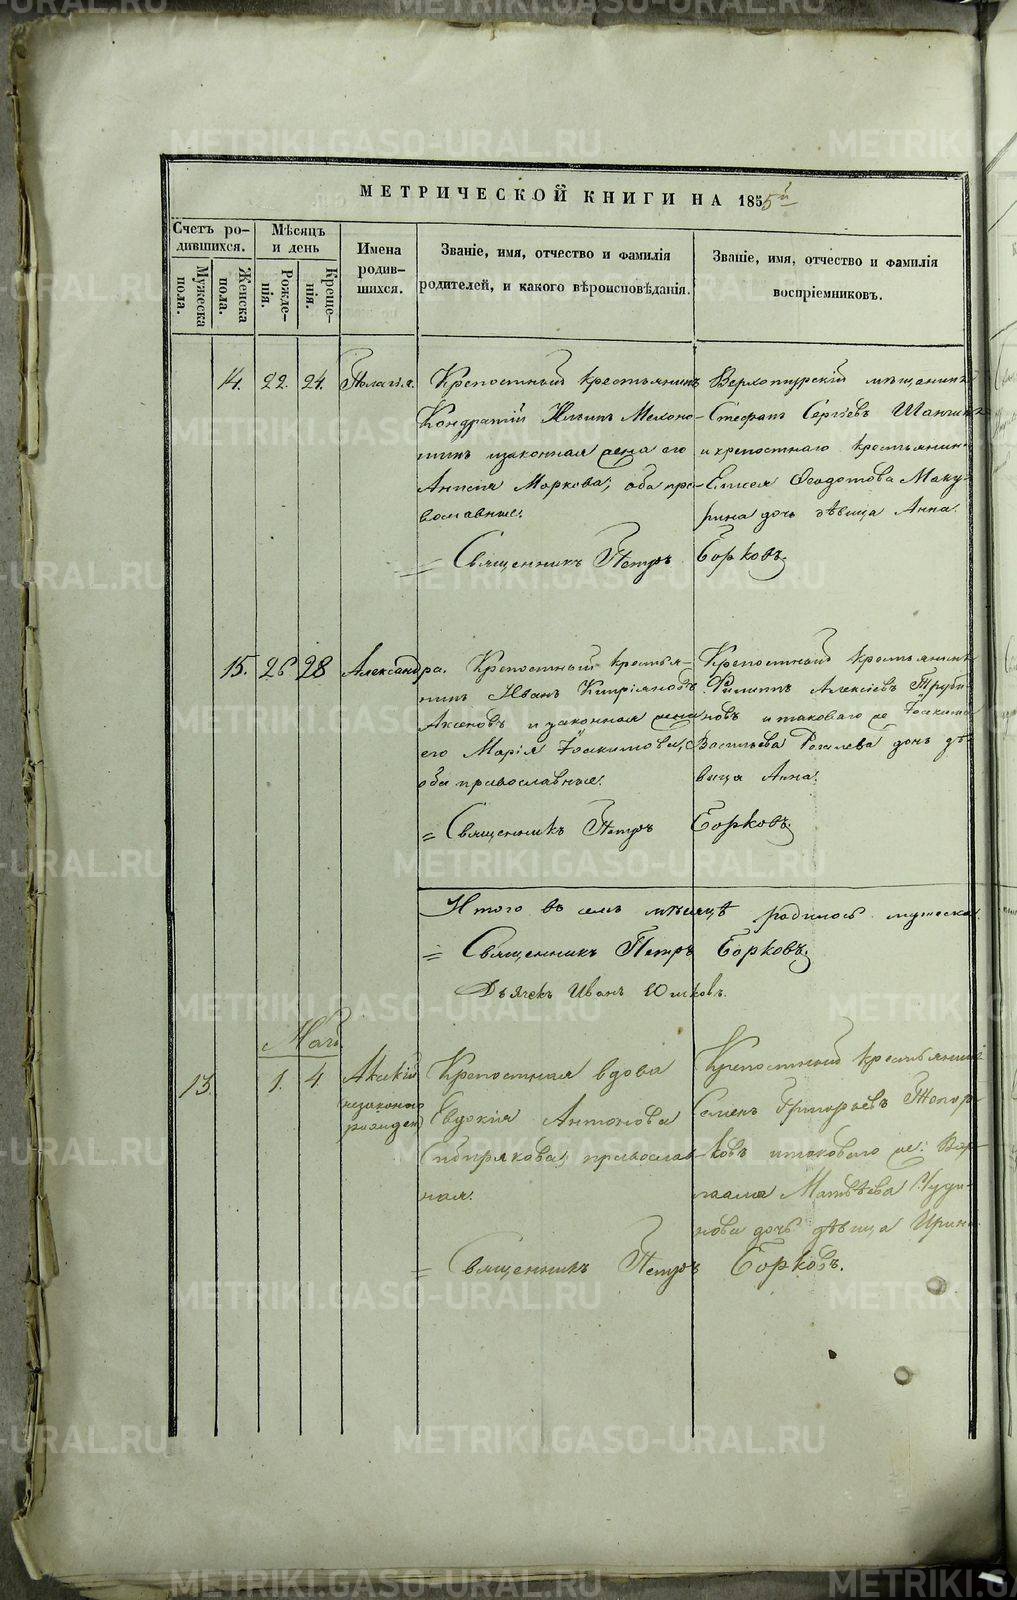 МЕТРИЧЕСКОЙ КНИГИ НА 1855й
Счетъ ро-
дившихся.
Мужеска
пола.
Женска
пола.
Мѣсяцъ
и день
Рожде-
нія.
Креще-
нія.
Имена
родив-
шихся.
Званіе, имя, отчество и фамилія
родителей, и какого вѣроисповѣданія.
Званіе, имя, отчество и фамилія
воспріемниковъ.
14. 22. 24. Пелагія.
Крепостный крестьянинъ
Кондратій Ильинъ
и законная жена его
Анисія Маркова, оба пра-
вославные.
Верхотурскій мѣщанинъ
Стефанъ Сергіевъ
и крепостнаго крестьянина
Елисея Ѳеодотова Маку-
рина дочь дѣвица Анна.
= Священникъ Петръ Борковъ.
15. 26 28 Александра.
Крепостный крестья-
нинъ Иванъ Кипріяновъ
Аксеновъ и законная жена
его Марія Іоакимова,
оба православные.
Крепостный крестьянинъ
Филиппъ Алексіевъ Труби-
новъ и таковаго же Іоакима
Васильева дочь дѣ-
вица Анна.
= Священникъ Петръ Борковъ.
Итого въ семъ мѣсяцѣ родилось мужеска
= Священникъ Петръ Борковъ.
Дьячекъ Иванъ Юшковъ.
Май
13. 1. 4. Акакій
незаконно
рожден.
Крепостная вдова
Евдокія Антонова
Сибирякова, православ-
ная.
Крепостный крестьянинъ
Семенъ Григорьевъ Топор-
ковъ и таковаго же Вар-
лаама Матвѣева Чуди-
нова дочь дѣвица Ирина.
= Священникъ Петръ Борковъ.
METRIKI.GASO-URAL.RU